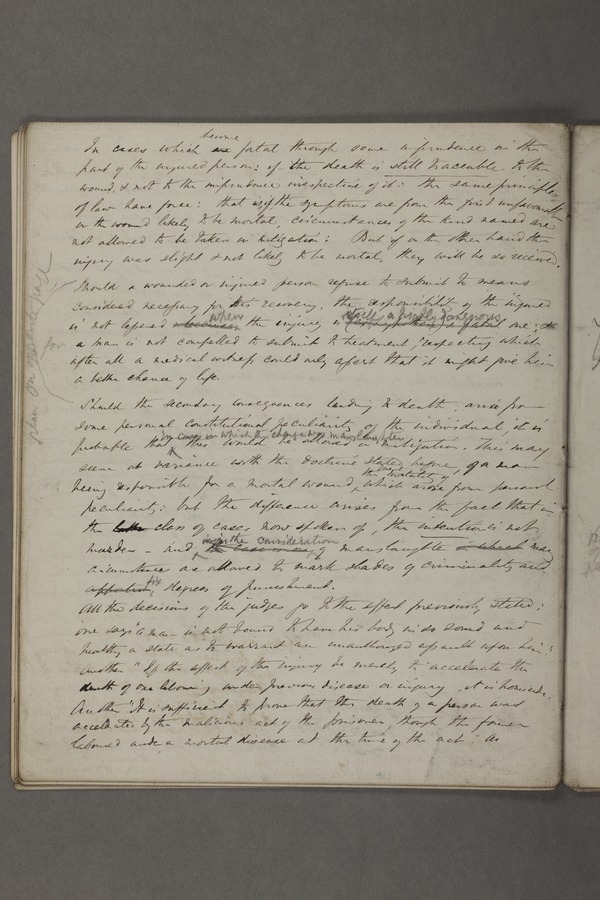 become
In cases which are fatal through some imprudence on the
part of the injured person: if the death is still traceable to the
wound, & not to the imprudence irrespective of it: the same principles
of law have force: that is if the symptoms are from the first unfavourable
or the wound likely to be mortal, circumstances of the kind named are
not allowed to be taken in mitigation: But if on the other hand the
injury was slight & not likely to be mortal, they will be so received.
Should a wounded or injured person refuse to submit to means
considered necessary for his recovery, the responsibility of the injurer
is not lessened when the injury is a fatal one;
a man is not compelled to submit to treatment, respecting which
after all a medical witness could only assert that it might give him
a better chance of life.
Should the secondary consequences leading to death, arise from
some personal constitutional peculiarity of the individual, it is
in cases in which the charge was manslaughter
probable that this would be allowed in mitigation. This may
seem at variance with the doctrine stated before, of a man
the mortality of
being responsible for a mortal wound, which arose from personal
peculiarity: but the difference arises from the fact that in
the class of cases now spoken of, the intention is not
in the consideration
murder - and the case is one of manslaughter which may
circumstances are allowed to mark shades of criminality and
for
degrees of punishment.
All the decisions of the judges go to the effect previously stated:
one says "a man is not bound to have his body in so sound and
healthy a state as to warrant an unauthorized assault upon him";
another "If the effect of the injury be merely to accelerate the
death of one labouring under previous disease or injury, it is homicide.
Another "It is sufficient to prove that the death of a person was
accelerated by the malicious act of the prisoner, though the former
laboured under a mortal disease at the time of the act." As